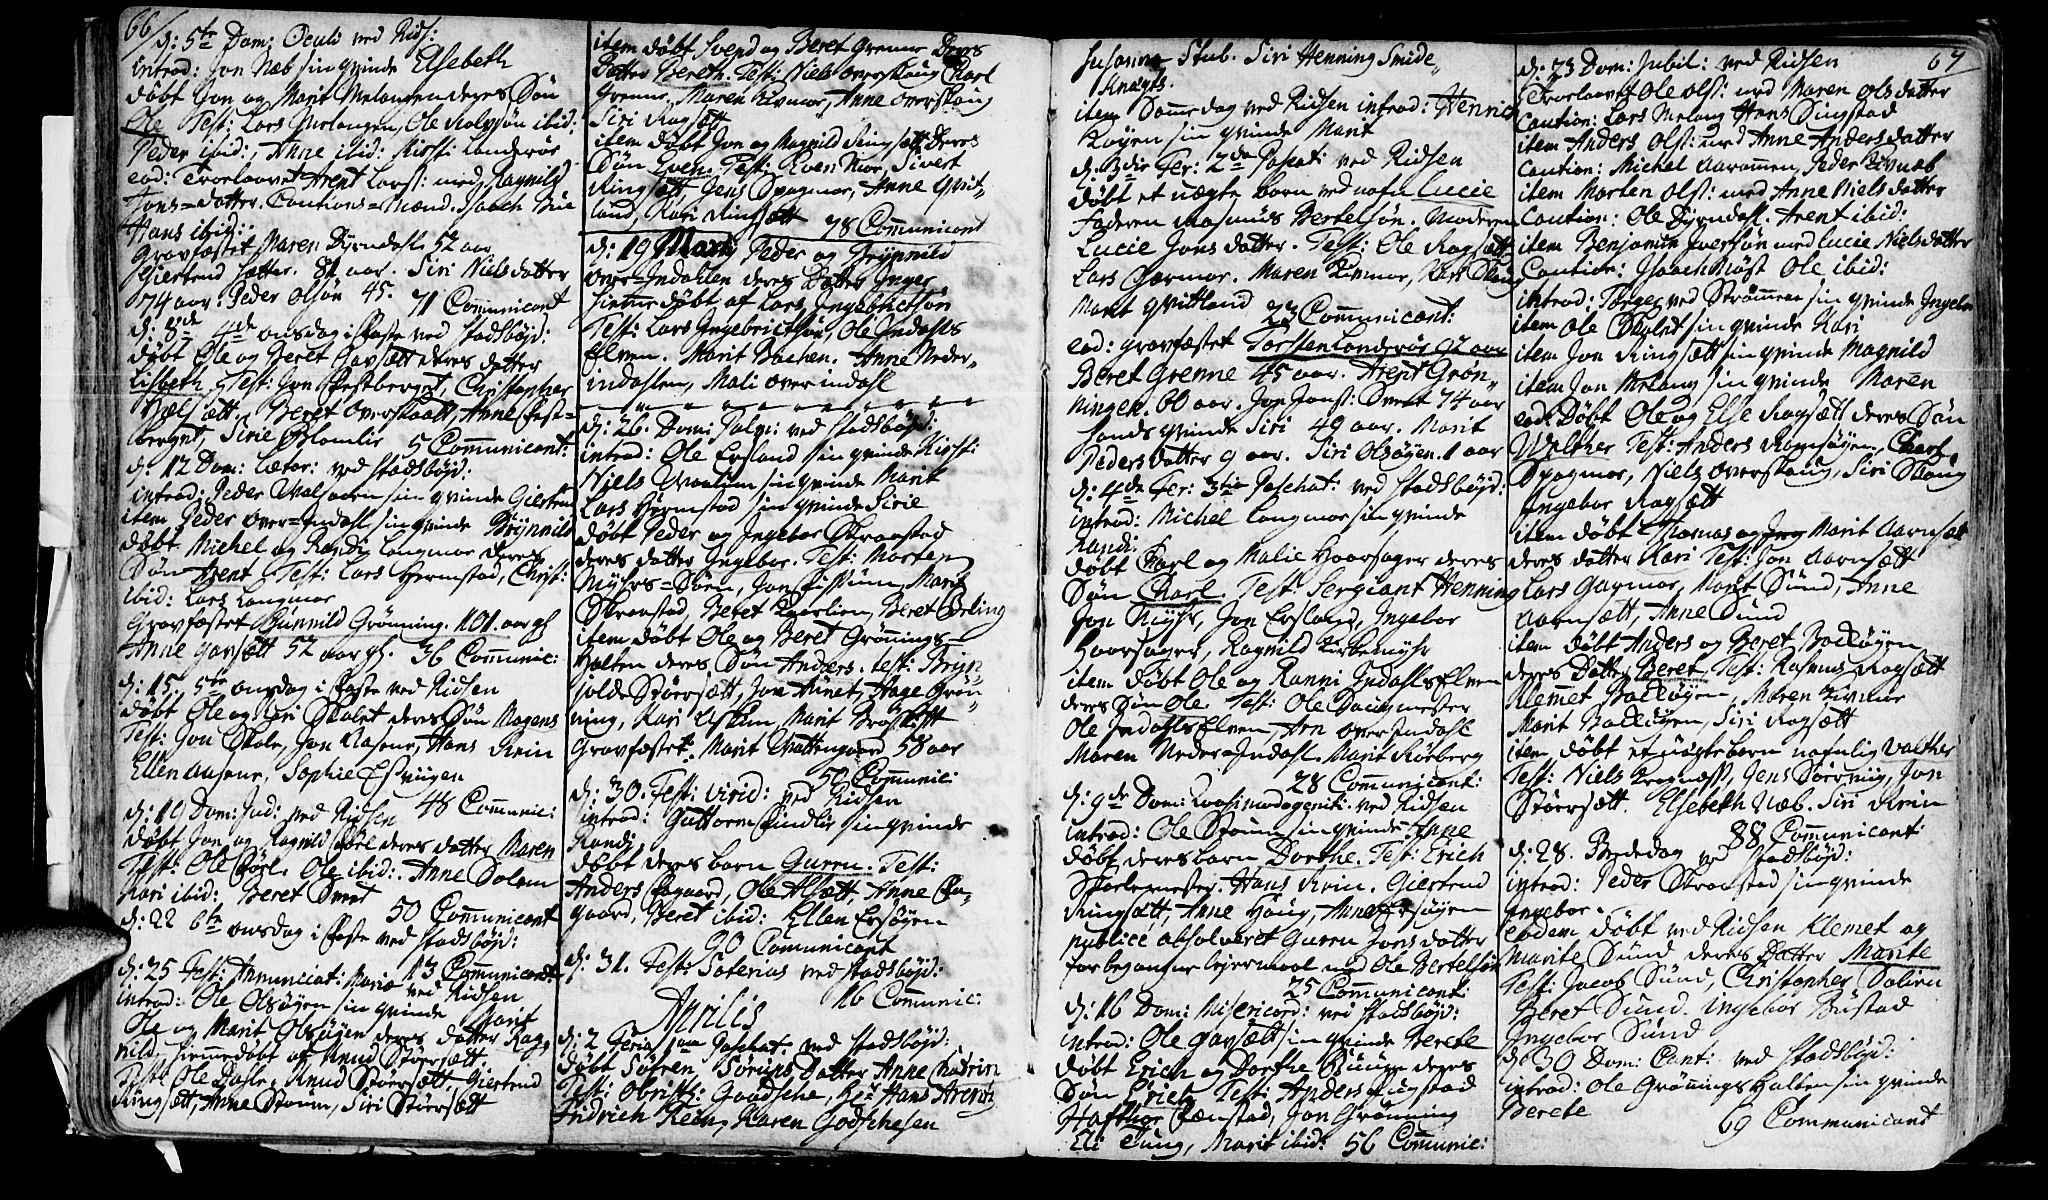 66
d: 5te Dom: Oculi ved Ridsen:
introd: Jon Næb sin qvinde Elsebeth
døbt Jon og Marit Melangen deres Søn
Ole Test: Lars Melangen, Ole Kalvsøn ibid:
Peder ibid:, Anne ibid: Kirsti Landerøe
eod: Trorlovet Arent Larss: med Ragnild
Jons=datter. Cautions=Mænd. Isaach
Hans ibid:
Gravfæstet Maren Dyrndahl 52 aar
Giertrud Sætter. 81 aar. Siri Nielsdatter
74 aar: Peder Olsøn 45. 71 Communicant
d: 8de 4de onsdag i faste ved Stadsbøyd:
døbt Ole og Beret Gavsætt deres datter
Lisbeth, Test: Jon Estbergnt, Christopher
Beret Overskaatt, Anne Est=
bergnt, Sirie Blomlie 5 Communicant:
d: 12 Dom: Lætar: ved Stadsbøyd:
introd: Peder Valsaaen sin qvinde Giertru
item Peder over=Indahl sin qvinde Brynnild
døbt Michel og Randi Langmoe deres
Søn Arent. Test: Lars Hermstad, Christ:
ibid: Lars Langmoe
Gravfæstet Gunnild Grønning. 101. aar gl
Anne Gavsætt 52 aar gl. 36 Communic:
d: 15. 5te onsdag i faste ved Ridsen
døbt Ole og Siri Skalet deres Søn Mogens
Test: Jon Skole, Jon Aasene, Hans Rein
Ellen Aasene, Sophie
d: 19 Dom: Jud: ved Ridsen 48 Communic:
døbt Jon og Ragnild Børl deres datter Maren
Test: Ole Børl. Ole ibid:. Anne Solem
Kari ibid: Beret Sved
50 Communicant
d: 22 6te onsdag i faste ved Stadsbøyd:
13 Communicant
d: 25 Fest: Annunciat: Mariæ ved Ridsen
introd: Ole Olsøyen sin qvinde Marit
Ole og Marit Olsøyen deres datter Rag-
nild, hiemmedøbt af Knud Størsætt
Test: Ole Dahle, Knud Størsætt, Giertrud
Ringsætt, Anne Størin, Siri Størsætt
item døbt Svend og Beret Grenne deres
Datter Bereth. Test: Niels Overskaug Charl
Grenne, Maren Bivmoe, Anne Overskaug
Siri Ragsætt
item døbt Jon og Magnild Ringsætt deres
Søn Even. Test: Even Moe, Sivert
Ringsætt Jens Spagmoe, Anne Qvit-
land, Kari Ringsætt 78 Communicant
d: 19 Martj Peder og Brynnild
over=Indahlen deres datter Inger
hiemmedøbt af Lars Ingebrictsøn
Test: Lars Ingebrictsøn, Ole Indahls
Elven. Marit Bachen. Anne Neder-
indahlen, Mali over indahl
d: 26. Dom: Palm: ved Stadsbøyd:
introd: Ole Ersland sin qvinde Kirsti
Niels Draalien sin qvinde Marit
Lars Hermstad sin qvinde Sirie
døbt Peder og Ingebor Skraastad
deres datter Ingebor. Test: Morten
Myhrs=Børn, Jon Kissum, Marit
Skraastad, Beret Beret Børling
item døbt Ole og Beret Grønnings-
halten deres Søn Anders. Test: Bryn-
jold Størsætt, Jon Aunet, Hage Grøn-
ning, Kari Marit
Gravfæstet: Marit Vattengaard 58 aar
50 Communic:
d: 30. Fest: virid: ved Ridsen
introd: Guttorm sin qvinde
Randi
døbt deres barn Guren. Test:
Anders Ole Alsætt, Anne
gaard, Beret ibid: Ellen Ersøyen
90 Communicant
d: 31. Fest: Soterias ved Stadsbøyd:
16 Communic:
Aprilis
d: 2 Feria 1ma Paschat. ved Stadsbøyd:
døbt Søfren Sørups Datter Anne Chatrin
Test: Obristl: Goedsche, Hr Hans Arentz
Fridrich Keen, Karen Godschesen
67
Susanna Stub. Siri Henning Smide
Knægts.
item Samme dag ved Ridsen introd: Hennin
Køyen sin qvinde Marit
d: 3die Fer: 2da Paschat: ved Ridsen
døbt et uægte barn ved nafn Lucie
Faderen Rasmus Bertelsøn. Moderen
Lucie Jonsdatter. Test: Ole Ragsætt
Lars Gaxmoe. Maren Bivmoe, Kari Skaug
Marit Qvitland 23 Communicant:
eod: gravfæstet Torsten Landerøe 92 aar
Beret Grenne 45 aar. Arent Grøn-
ningen. 60 aar. Jon Jonss: Sved 74 aar
qvinde Siri 49 aar. Marit
Pedersdatter 9 aar. Siri Olsøyen. 1 aar
d: 4de Fer: 3tia Paschat: ved Stadsbøyd:
introd: Michel Langmoe sin qvinde
Randi.
døbt Charl og Malie Haarsager deres
Søn Charl. Test: Sergiant Henning
Jon Myhr, Jon Ersland, Ingebor
Haarsager, Ragnild Kirkemyhr
item døbt Ole og Ranni Indahls Elven
deres Søn Ole. Test: Ole
Ole Indahls Elven, Arn over Indahl
Maren Neder=Indahl. Marit Rørberg
28 Communicant:
d: 9de Dom: Quasimodogenit: ved Ridsen
introd: Ole Størin sin qvinde Anne
døbt deres barn Dorthe. Test: Erich
Skolemester. Hans Rein. Giertrud
Ringsætt, Anne Haug, Anne Ersøyen
publicè absolveret Guren Jonsdatter
for begangne leyermaal med Ole Bertelsøn
25 Communicant:
d: 16 Dom: Misericord: ved Stadsbøyd:
introd: Ole Gavsætt sin qvinde Berete
døbt Erich og Dorthe deres
Søn Erich Test: Anders Fugstad
Hafthor Fænstad, Jon Grønning
Eli Marit ibid: 56 Communic:
d: 23 Dom: Jubil: ved Ridsen
Trorlovet Ole Olss: med Maren Olsdatter
Caution: Lars Melang Hans Singstad
item Anders Olss: med Anne Andersdatter
Caution: Michel Aarømmen, Peder
item Morten Olss: med Anne Nielsdatter
Caution: Ole Dyrndahl. Arent ibid:
item Benjamin Iversøn med Lucie Nielsdatter
Caution: Isaach Røst Ole ibid:
introd: Torger ved Strømmen sin qvinde Ingebor
item Ole Skalet sin qvinde Kari
item Jon Ringsætt sin qvinde Magnild
item Jon Melang sin qvinde Maren
eod: Døbt Ole og Else Ragsætt deres Søn
Walther Test: Anders Ramsøyen, Charl
Spagmoe, Niels Overskaug, Siri Skaug
Ingebor Ragsætt
item døbt Thomas og Marit Aarnsætt
deres datter Kari Test: Jon Aarnsætt
Lars Gagmoe, Marit Sund, Anne
Aarnsætt, Anne Sund
item døbt Anders og Beret Badløyen
deres Datter Beret Test: Rasmus Ragsætt
Klemet Badløyen, Maren Bivmoe
Marit Badløyen, Siri Ragsætt
item døbt et uægte barn nafnlig Valther
Test: Niels Jens Jon
Størsætt. Elsebeth Næb. Siri Rein
88 Communicant:
d: 28. Bededag ved Stadsbøyd:
introd: Peder Skraastad sin qvinde
Ingebor.
eodem døbt ved Ridsen Klemet og
Marite Sund deres Datter Marite
Test: Jacob Sund, Christopher Solem
Beret Sund. Ingebor Bustad
Ingebor Sund
d: 30 Dom: Cant: ved Stadsbøyd:
introd: Ole Grønnings Halten sin qvinde
Berete
69 Communicant